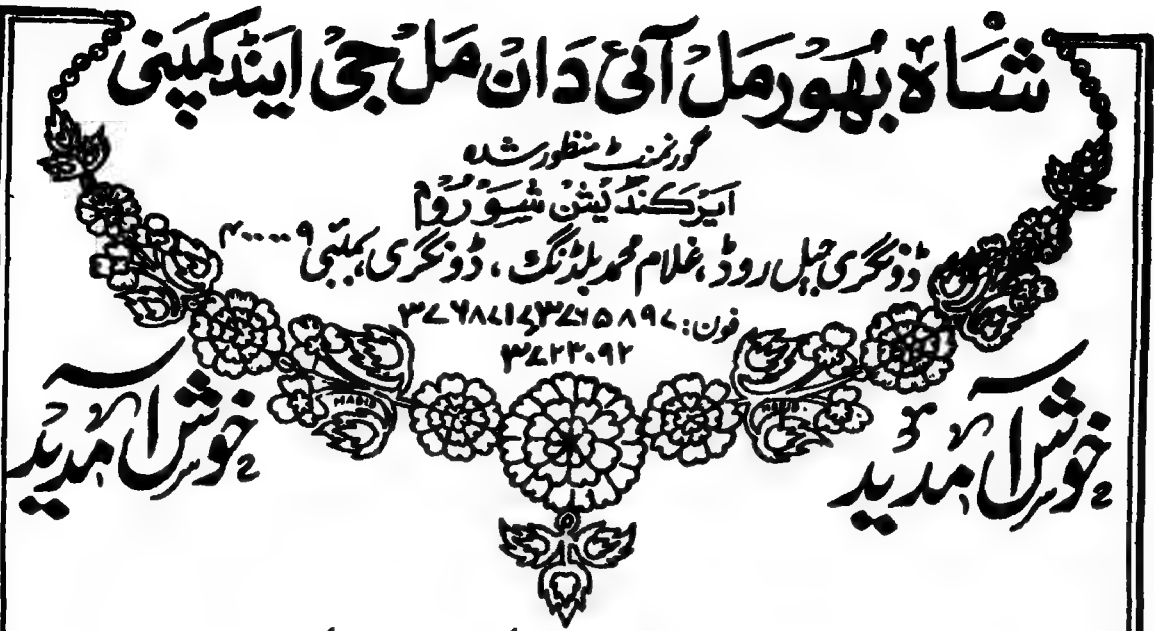 شاہ بھورمل آئی دان مل جی اینڈ کمپنی
گورنمنٹ منظور شدہ
ایرکنڈیشن شوروم
ڈونگری جیل روڈ، غلام محمد بلڈنگ، ڈونگری، بمبئی ۴۰۰۰۰۹
فون: ۳۷۶۵۸۹۷, ۳۷۶۸۷۱۷
۳۷۲۳۰۹۲
خوش آمدید
خوش آمدید
HABIB
HABIB